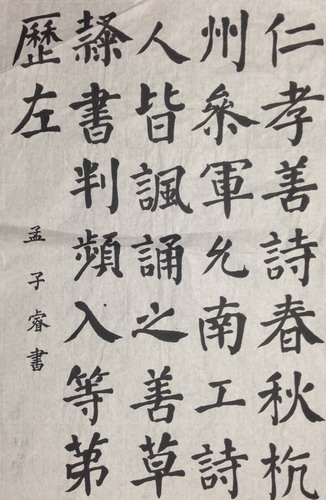 仁孝善詩春秋杭
州叅軍允南工詩
人皆諷誦之善草
隸書判頻入等第
歷左
孟子睿書